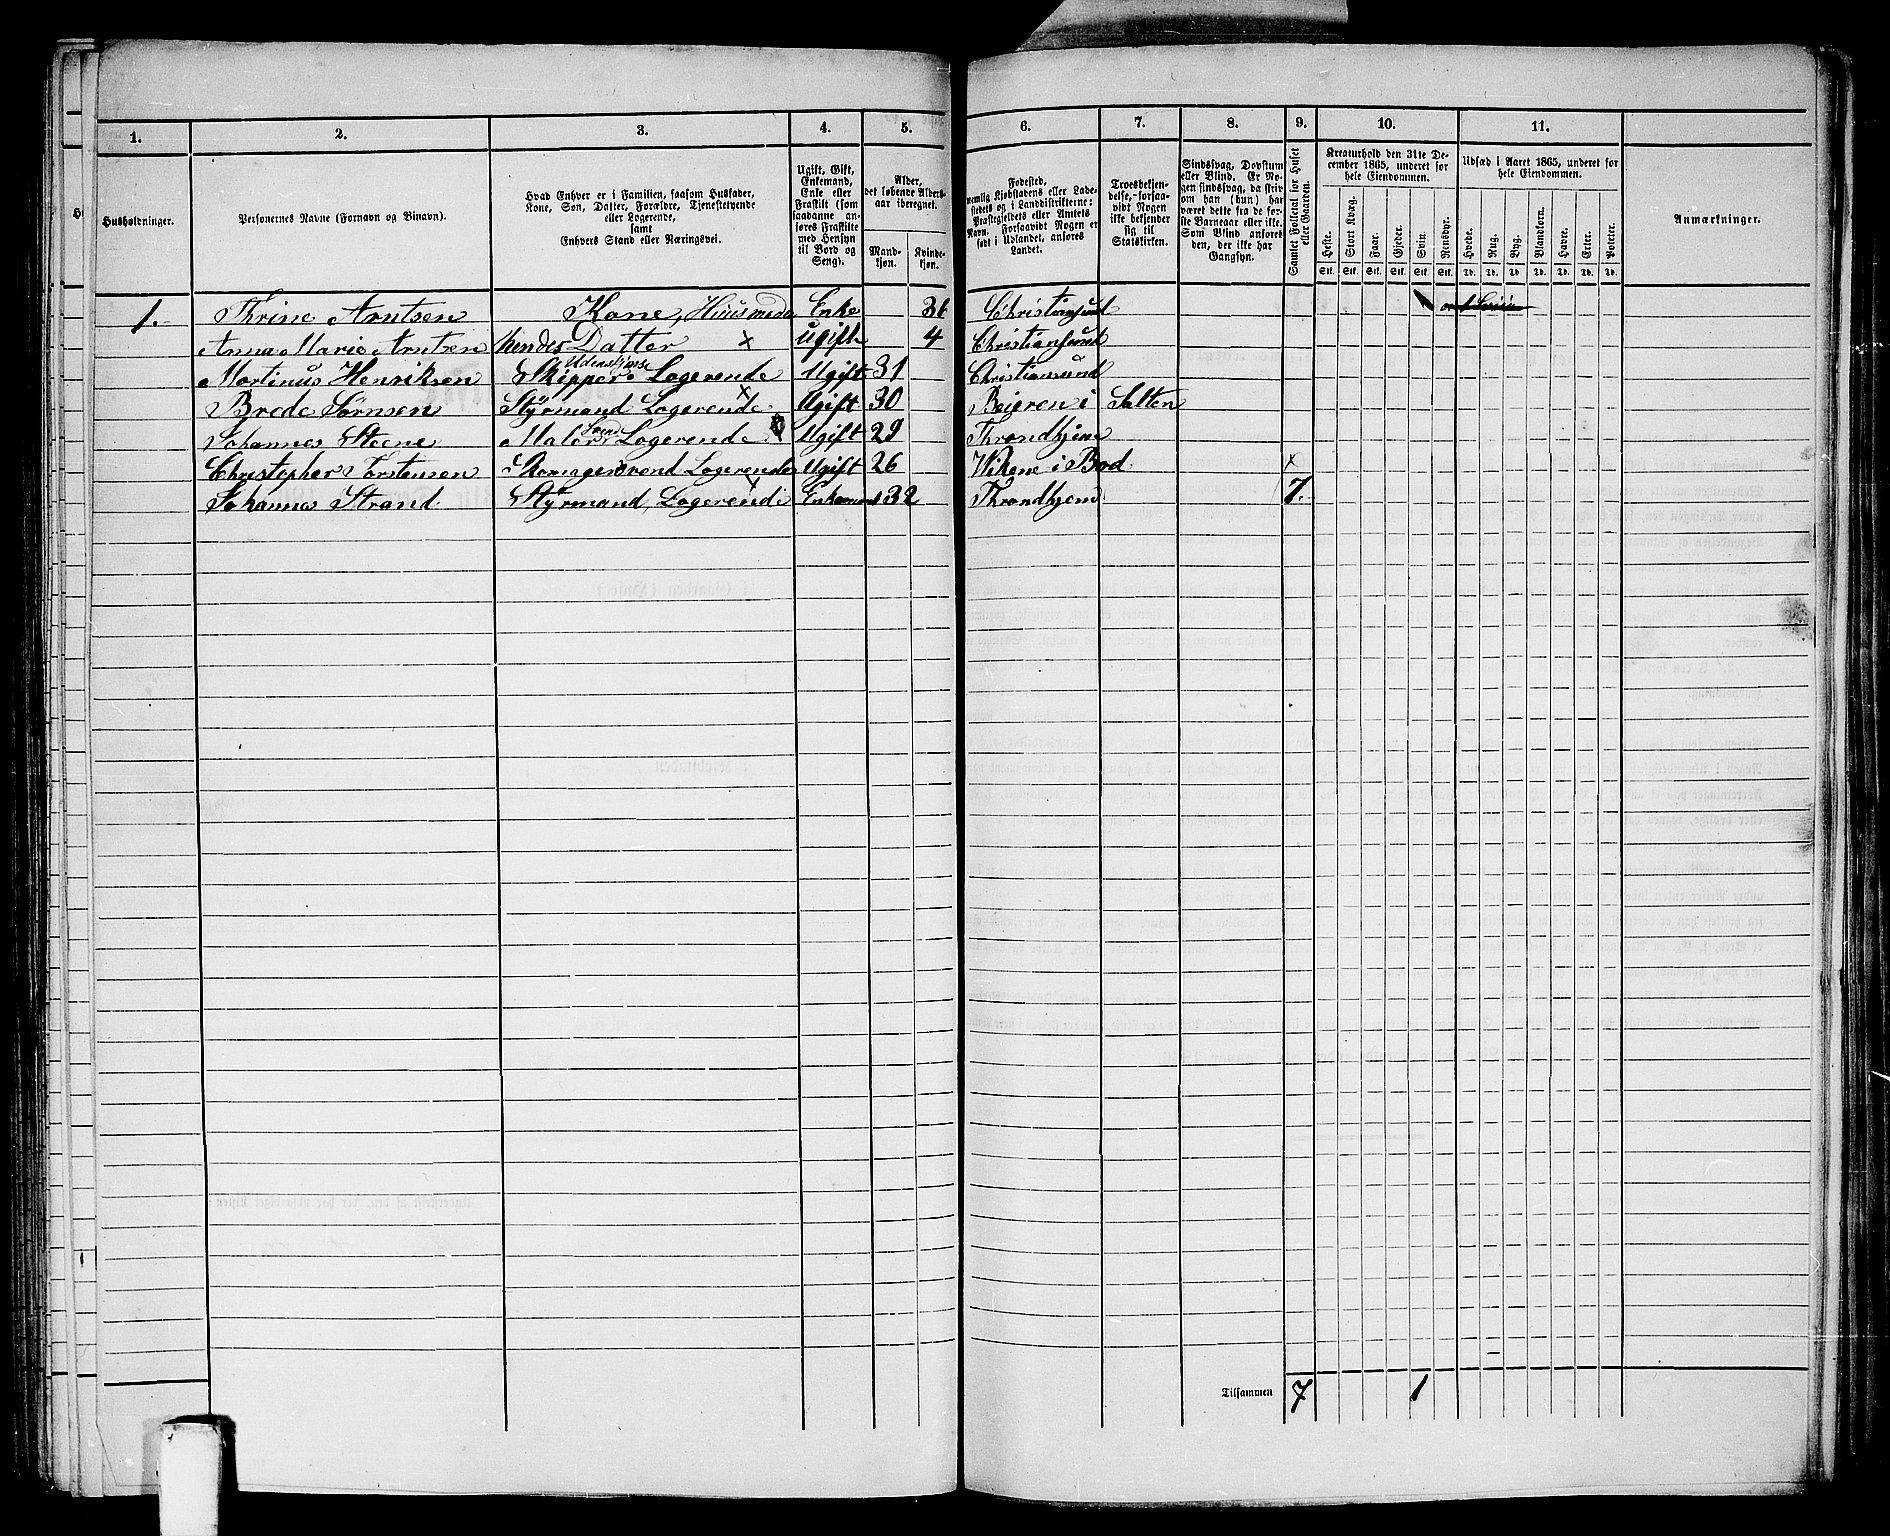 1. 2. 3. 4. 5. 6. 7. 8. 9. 10. 11.
Husholdninger.
Personernes Navne (Fornavn og Binavn).
Hvad Enhver er i Familien, saasom Husfader,
Kone, Søn, Datter, Forældre, Tjenestetyende
eller Logerende,
samt
Enhvers Stand eller Næringsvei.
Ugift, Gift,
Enkemand,
Enke eller
Fraskilt (som
saadanne an-
føres Fraskilte
med Hensyn
til Bord og
Seng).
Alder,
det løbende Alders-
aar iberegnet.
Mand-
kjøn.
Kvinde-
kjøn.
Fødested,
nemlig Kjøbstadens eller Lade-
stedets og i Landdistrikterne:
Præstegjeldets eller Amtets
Navn. Forsaavidt Nogen er
født i Udlandet, anføres
Landet.
Troesbekjen-
delse, forsaa-
vidt Nogen
ikke bekjender
sig til
Statskirken.
Sindssvag, Døvstum
eller Blind. Er No-
gen sindssvag, da skri-
ves om han (hun) har
været dette fra de før-
ste Barneaar eller ikke.
Som Blind anføres
den, der ikke har
Gangsyn.
Samlet Folketal for Huset
eller Gaarden.
Kreaturhold den 31te De-
cember 1865, underet for
hele Eiendommen.
Heste. Stort Kvæg. Faar. Gjeder. Svin. Rensdyr.
Stk. Stk. Stk. Stk. Stk. Stk.
Udsæd i Aaret 1865, underet for
hele Eiendommen.
Hvede. Rug. Byg. Blandkorn. Havre. Erter. Poteter.
Td. Td. Td. Td. Td. Td. Td.
Anmærkninger.
1. Thrine Arntsen Kone, Huusmoder Enke 36 Christiansund
Anna Marie Arntsen Hendes Datter x Ugift 4 Christiansund
Martinus Henriksen Skipper Udenskjærs Logerende Ugift 31 Christiansund
Brode Sørnsen Styrmand Logerende x Ugift 30 Beieren i Salten
Johannes Steene Maler Svend Logerende Ugift 29 Throndhjem
Christopher Torstensen Logerende Ugift 26 Wikene i Bod x
Johannes Strand Styrmand, Logerende Enkemand 32 Throndhjem 7.
Tilsammen 7 1